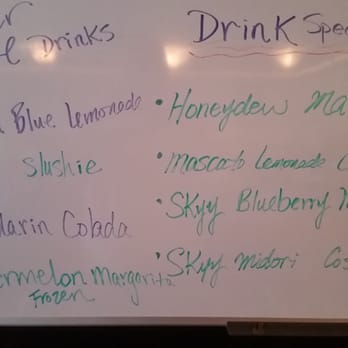 Drinks
Blue Lemonade
Slushie
Marin Colada
ermelon Margarita
Frozen
Drink Spe
• Honeydew Ma
• Mascato Lemonade
• SKYY Blueberry
• SKyy midori Cos